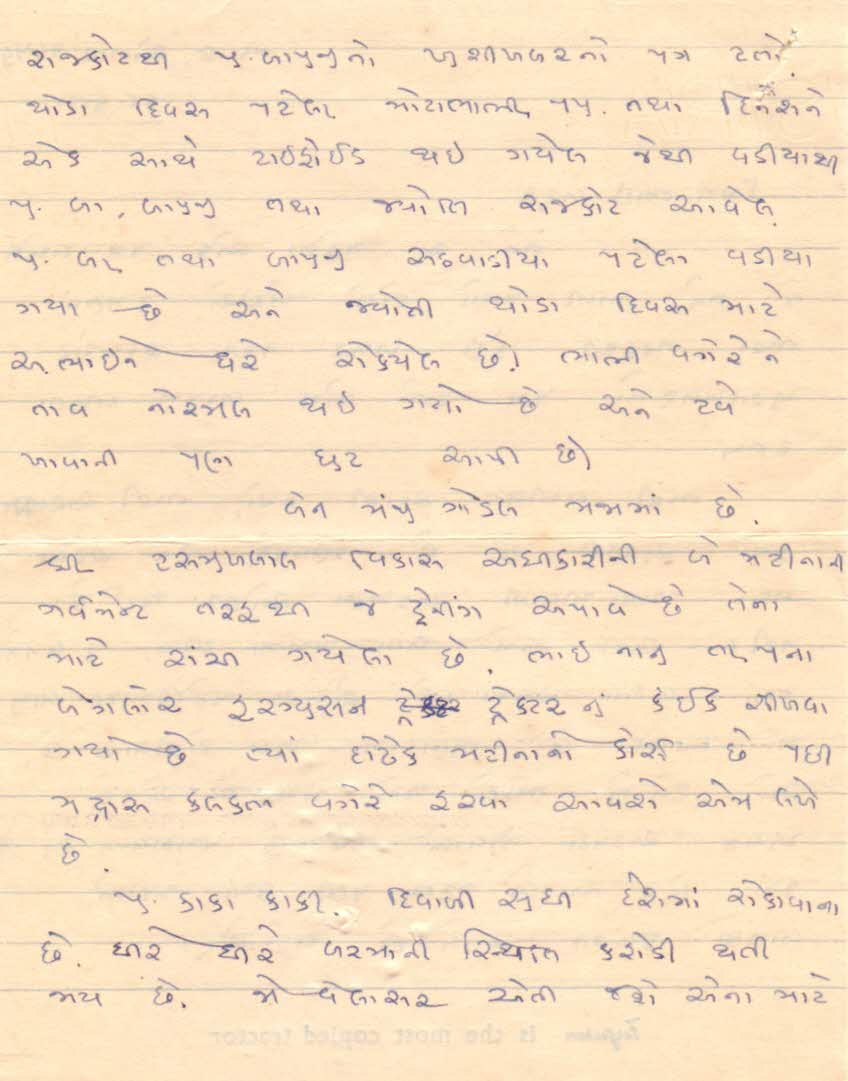 રાજકોટથી પૂ. બાપુજીનો ખુશીખબરનો પત્ર હતો.
થોડા દિવસ પહેલા મોટાભાભી પપુ. તથા દિનેશને
એક સાથે ટાઈફોઈડ થઈ ગયેલ જેથી વડીયાથી
પૂ. બા, બાપુજી તથા જ્યોતિ રાજકોટ આવેલ.
પૂ. બા તથા બાપુજી અઠવાડીયા પહેલા વડીયા
ગયા છે અને જ્યોતી થોડા દિવસ માટે
અ. ભાઇને ઘરે રોકાયેલ છે. ભાભી વગેરેને
તાવ નોરમલ થઈ ગયો છે અને હવે
ખાવાની પણ છુટ આપી છે
બેન મંજુ ગોંડલ મજામાં છે.
હસમુખલાલ વિકાસ અધીકારીની બે મહીનાની
ગર્વમેન્ટ તરફથી જે ટ્રેનીંગ અપાવે છે તેના
માટે ગયેલા છે. ભાઇ નાનુ
બેંગલોર ફરગ્યુસન ટ્રેકટર નું કંઈક શીખવા
ગયો છે ત્યાં દોઢેક મહીનાનો કોર્સ છે પછી
મદ્રાસ કલકત્તા વગેરે ફરવા આવશે એમ લખે
છે.
પૂ. કાકા કાકી. દિવાળી સુધી દેશમાં રોકાવાના
છે. ધીરે ધીરે બરમાની સ્થિતિ કફોડી થતી
જાય છે. જો વેલાસર એની જશે એના માટે
is the most copied tractor